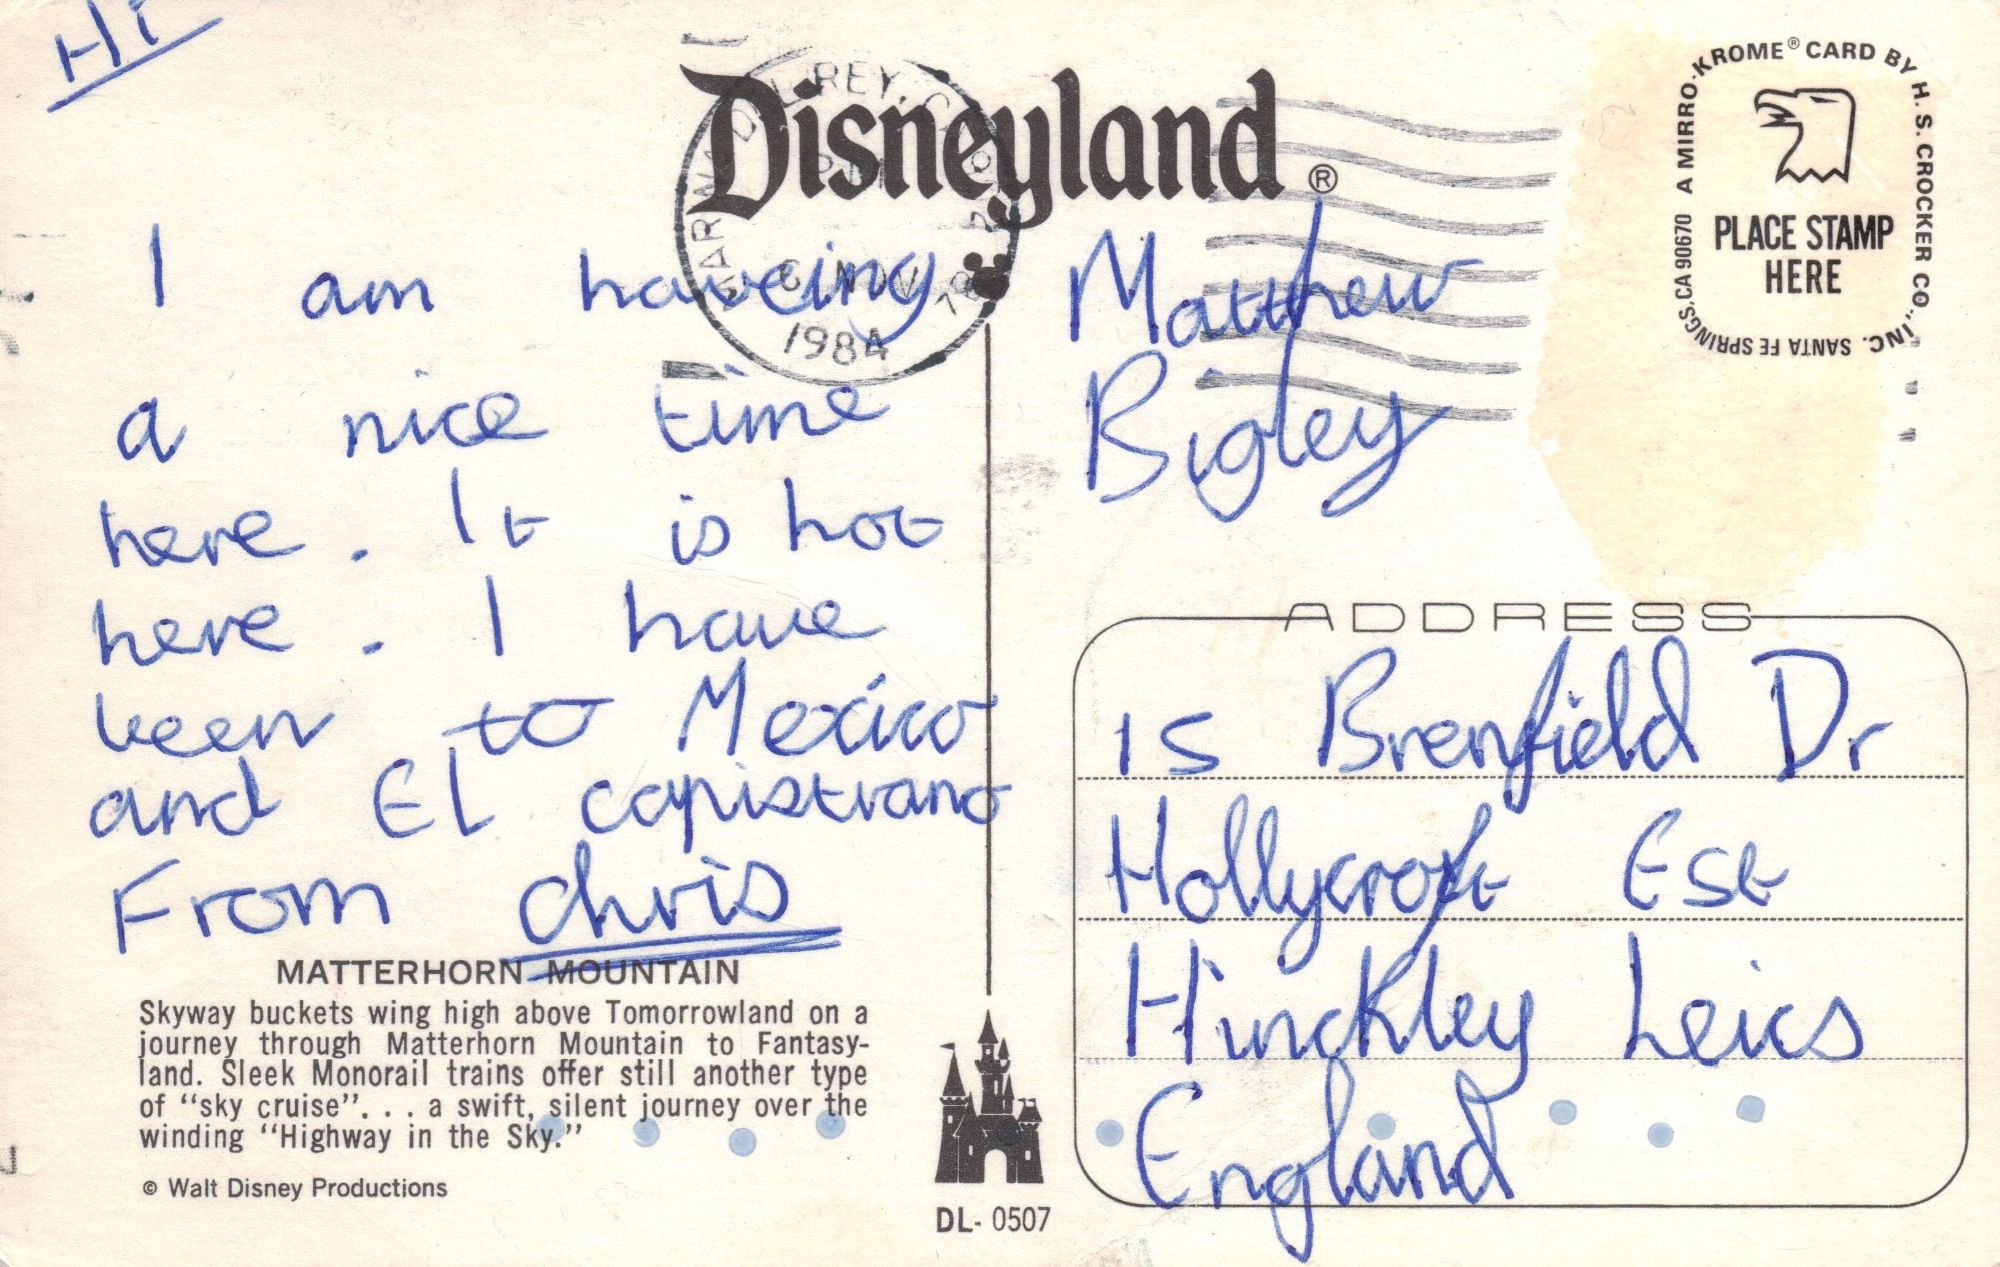 Hi
Disneyland®
A MIRRO-KROME® CARD BY H. S. CROCKER CO., INC. SANTA FE SPRINGS, CA 90670
PLACE STAMP
HERE
REY, C
PM
6 NOV
1984
I am haveing
a nice time
here. It is hot
here. I have
been to Mexico
and El capistrano
From chris
Matthew
Bigley
ADDRESS
15 Brenfield Dr
Hollycroft Est
Hinckley Leics
England
MATTERHORN MOUNTAIN
Skyway buckets wing high above Tomorrowland on a
journey through Matterhorn Mountain to Fantasy-
land. Sleek Monorail trains offer still another type
of "sky cruise". . . a swift, silent journey over the
winding "Highway in the Sky."
© Walt Disney Productions
DL- 0507